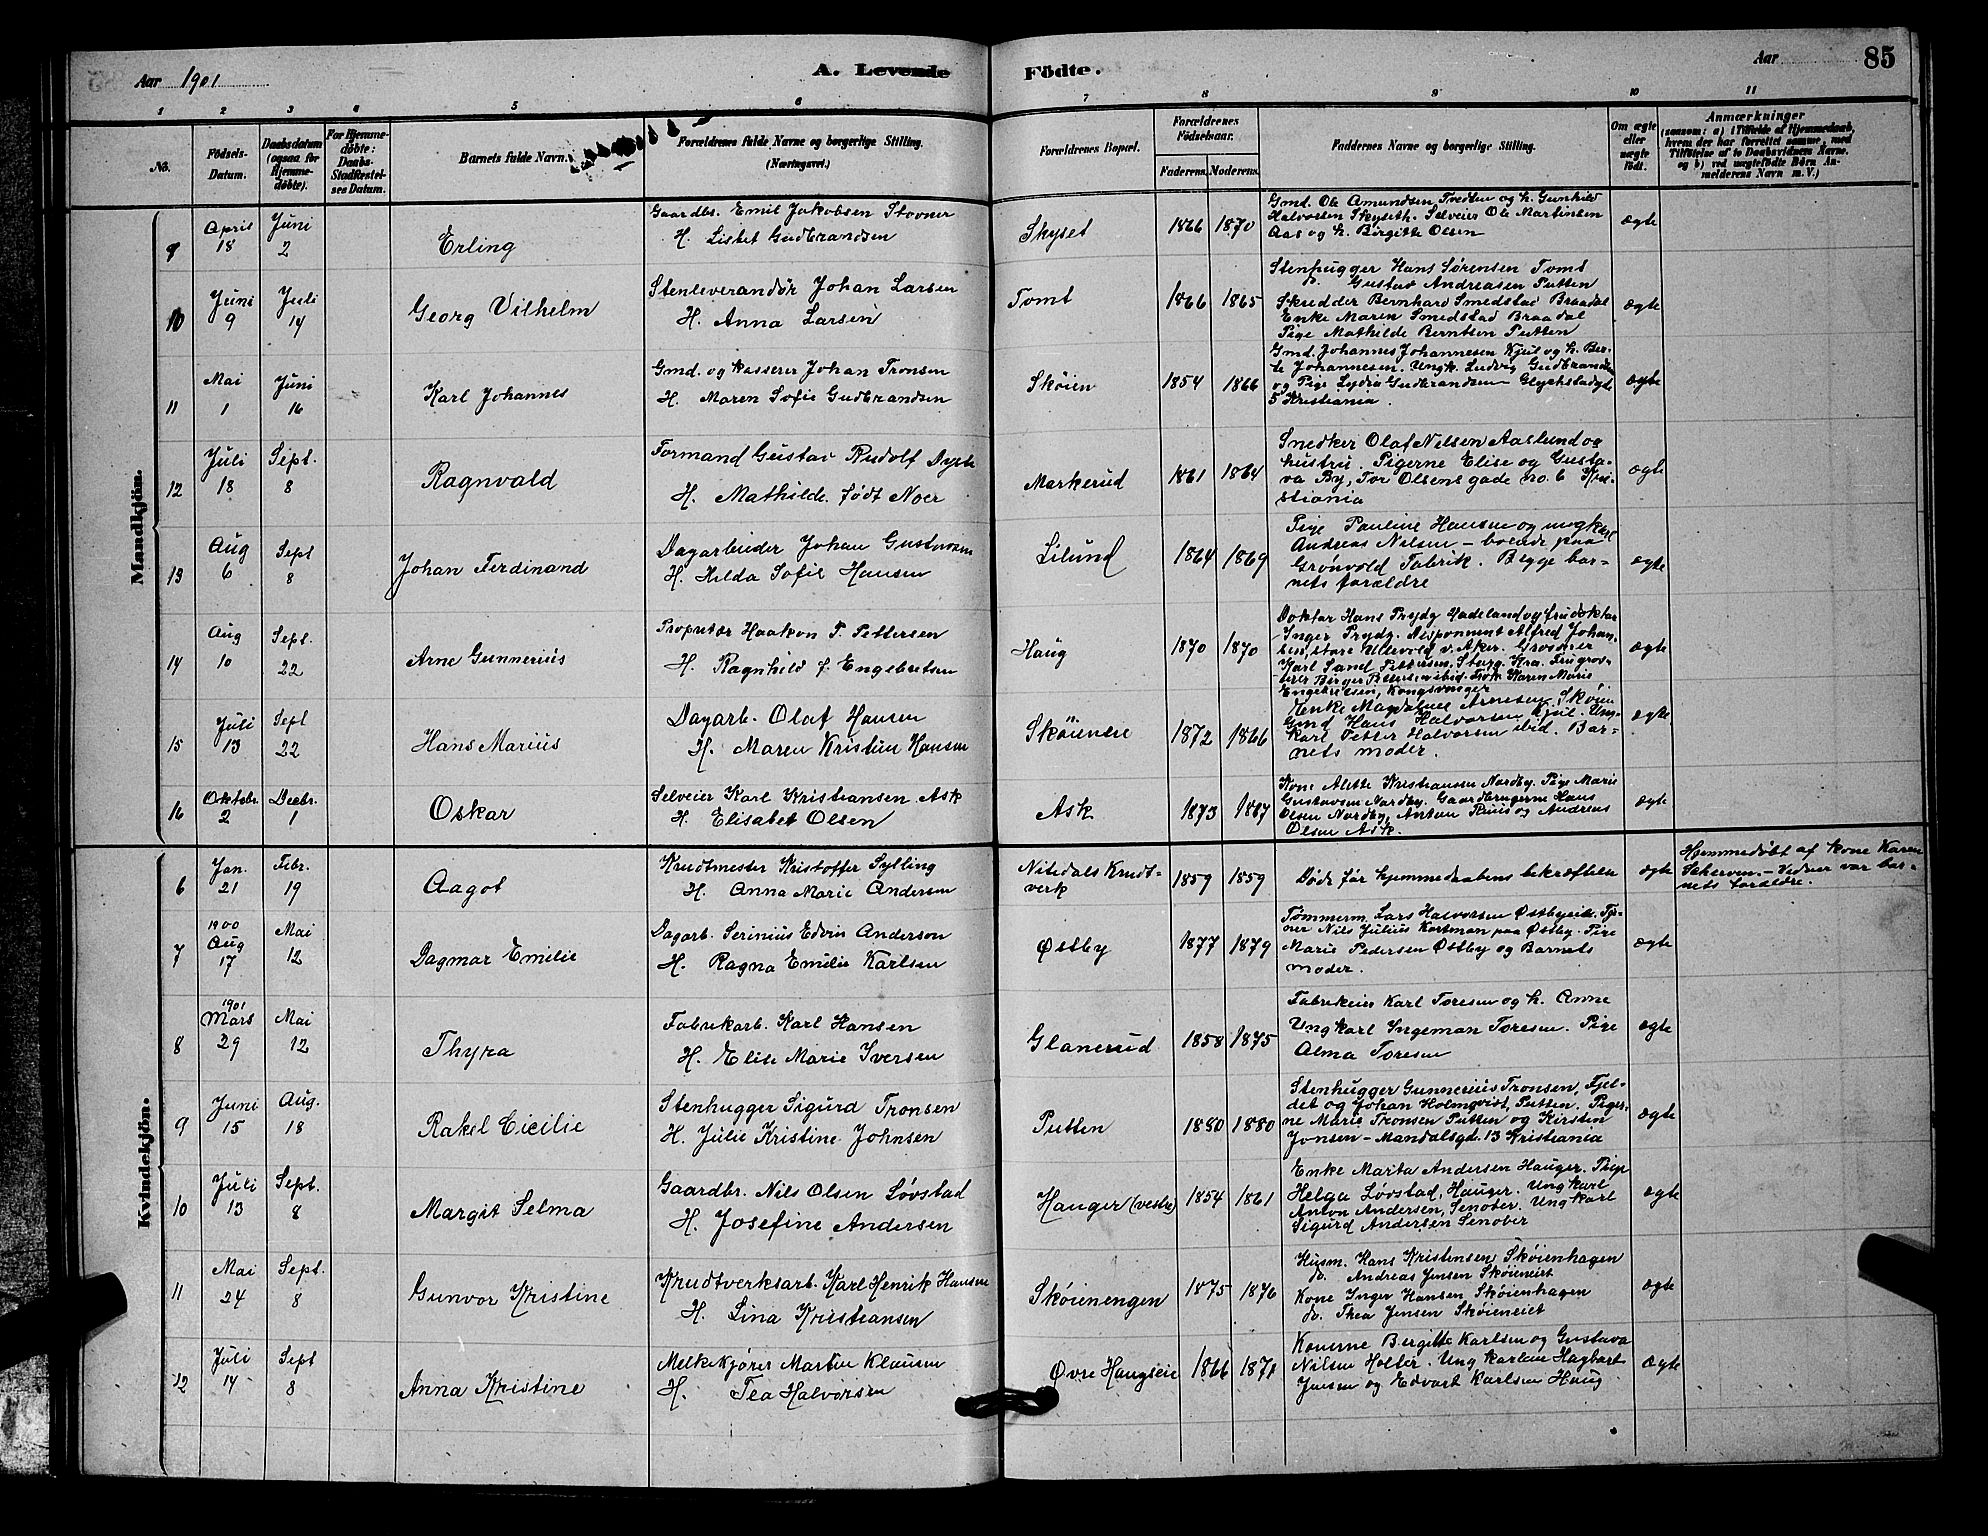 Aar 1901
A. Levende Födte.
Aar
85
1 2 3 4 5 6 7 8 9 10 11
No.
Födsels-Datum.
Daabsdatum (ogsaa for Hjemme-döbte).
For Hjemme-döbte: Daabs-Stadfæstel-ses Datum.
Barnets fulde Navn.
Forældrenes fulde Navne og borgerlige Stilling. (Næringsvei.)
Forældrenes Bopæl.
Forældrenes Födselsaar.
Faderens. Moderens.
Faddernes Navne og borgerlige Stilling.
Om ægte eller uægte födt.
Anmærkninger
(saasom: a) i Tilfælde af Hjemmedaab, hvem der har forrettet samme, med Tilföielse af to Daabsvidners Navne, og b) ved uægtefödte Börn An-melderens Navn m. V.)
Mandkjön.
9 April 18 Juni 2 Erling
Gaardbr. Emil Jakobsen Stovner
H. Lisbet Gudbrandsen
Skyset 1866 1870
Gmd. Ole Amundsen Tvedten og h. Gunhild
Halvorsen Skyseth. Selveier Ole Martinsen
Aas og h. Birgitte Olsen
ægte
10 Juni 9 Juli 14 Georg Vilhelm
Stenleverandør Johan Larsen
H. Anna Larsen
Tomt 1866 1865
Stenhugger Hans Sørensen Tomt
do. Gustav Andreasen Putten
Skrædder Bernhard Smedstad Braadal
Enke Maren Smedstad Braadal
Pige Mathilde Berntsen Putten
ægte
11 Mai 1 Juni 16 Karl Johannes
Gmd. og kasserer Johan Tronsen
H. Maren Sofie Gudbrandsen
Skøien 1854 1866
Gmd. Johannes Johannesen Kjul og h. Ber-
te Johannesen. Ungk. Ludvig Gudbrandsen
og Pige Lydia Gudbrandsen
5 Kristiania.
ægte
12 Juli 18 Sept. 8 Ragnvald
Formand Gustav Rudolf Dyste
H. Mathilde født Noer
Markerud 1861 1864
Snedker Olaf Nilsen Aaslund og
hustru. Pigerne Elise og Gusta-
va By, Tor Olsens gade no. 6 Kri-
stiania
ægte
13 Aug 6 Sept 8 Johan Ferdinand
Dagarbeider Johan Gustavsen
H. Hilda Sofie Hansen
Lilund 1864 1869
Pige Pauline Hansen og ungkarl
Andreas Nilsen – boende paa
Grønvold Fabrik. Begge bar-
nets forældre
ægte
14 Aug 10 Sept. 22 Arne Gunnerius
Proprietær Haakon T. Pettersen
H. Ragnhild f. Engebretsen
Haug 1870 1870
Doktor Hans Prydz Hadeland og frue doktor
Inger Prydz. Disponent Alfred Johan-
sen, store Ullevold v. Aker. Grosserer
Karl Sand Pettersen, Storg. Kra. Fru gros-
serer Birger Pettersen ibid. Frk Karen Marie
Engebretsen, Kongsvinger
ægte
15 Juli 13 Sept 22 Hans Marius
Dagarb. Olaf Hansen
H. Maren Kristine Hansen
Skøienere 1872 1866
Enke Magdalene Arnesen, Skøien
Gmd Hans Halvorsen Kjul. Ung-
karl Petter Halvorsen ibid. Bar-
nets moder.
ægte
16 Oktobr. 2 Decbr. 1 Oskar
Selveier Karl Kristiansen Ask
H. Elisabet Olsen
Ask 1873 1867
Kone Alette Kristiansen Nordby. Pige Marie
Gustavsen Nordby. Gaardbrugerne Hans
Olsen Nordby, Anton Ruus og Andreas
Olsen Ask.
ægte
Kvindekjön.
6 Jan. 21 Febr. 19 Aagot
Krudtmester Kristoffer Sylling
H. Anna Marie Andersen
Nitedals Krudt-
verk 1859 1859
Døde før hjemmedaabens bekræftelse
ægte
Hjemmedøbt af kone Karen
Vidner var bar-
nets forældre.
7 1900 Aug 17 Mai 12 Dagmar Emilie
Dagarb. Serinius Edvin Anderson
H. Ragna Emilie Karlsen
Østby 1877 1879
Tømmerm. Lars Halvorsen Østbyeie. Tøm-
mer Nils Julius Kortman paa Østby. Pige
Marie Pedersen Østby og Barnets
moder.
ægte
8 1901 Mars 29 Mai 12 Thyra
Fabrikarb. Karl Hansen
H. Elise Marie Iversen
Glanerud 1858 1875
Fabrikeier Karl Toresen og h. Anne
Ungkarl Ingeman Toresen. Pige
Alma Toresen
ægte
9 Juni 15 Aug. 18 Rakel Cicilie
Stenhugger Sigurd Tronsen
H. Julie Kristine Johnsen
Putten 1880 1880
Stenhugger Gunnerius Tronsen, Fjel-
det og Johan Holmqvist, Putten. Piger-
ne Marie Tronsen Putten og Kirsten
Jonsen – Mandalsgd. 13 Kristiania
ægte
10 Juli 13 Sept. 8 Margit Selma
Gaardbr. Nils Olsen Løvstad
H. Josefine Andersen
Hauger (vestre) 1854 1861
Enke Marta Andersen Hauger. Pige
Helga Løvstad, Hauger. Ungkarl
Anton Andersen, Senober. Ungkarl
Sigurd Andersen Senober
ægte
11 Mai 24 Sept. 8 Gunvor Kristine
Krudtverksarb. Karl Henrik Hansen
H. Lina Kristiansen
Skøienengen 1875 1876
Husm. Hans Kristensen, Skøienhagen
do. Andreas Jensen Skøieneiet
Kone Inger Hansen Skøienhagen
do. Thea Jensen Skøieneiet
ægte
12 Juli 14 Sept 8 Anna Kristine
Melkekjører Martin Klausen
H. Tea Halvorsen
Øvre Haugseie 1866 1871
Konerne Bergitte Karlsen og Gustava
Nilsen Holter. Ungkarlene Hagbart
Jensen og Edvart Karlsen Haug
ægte